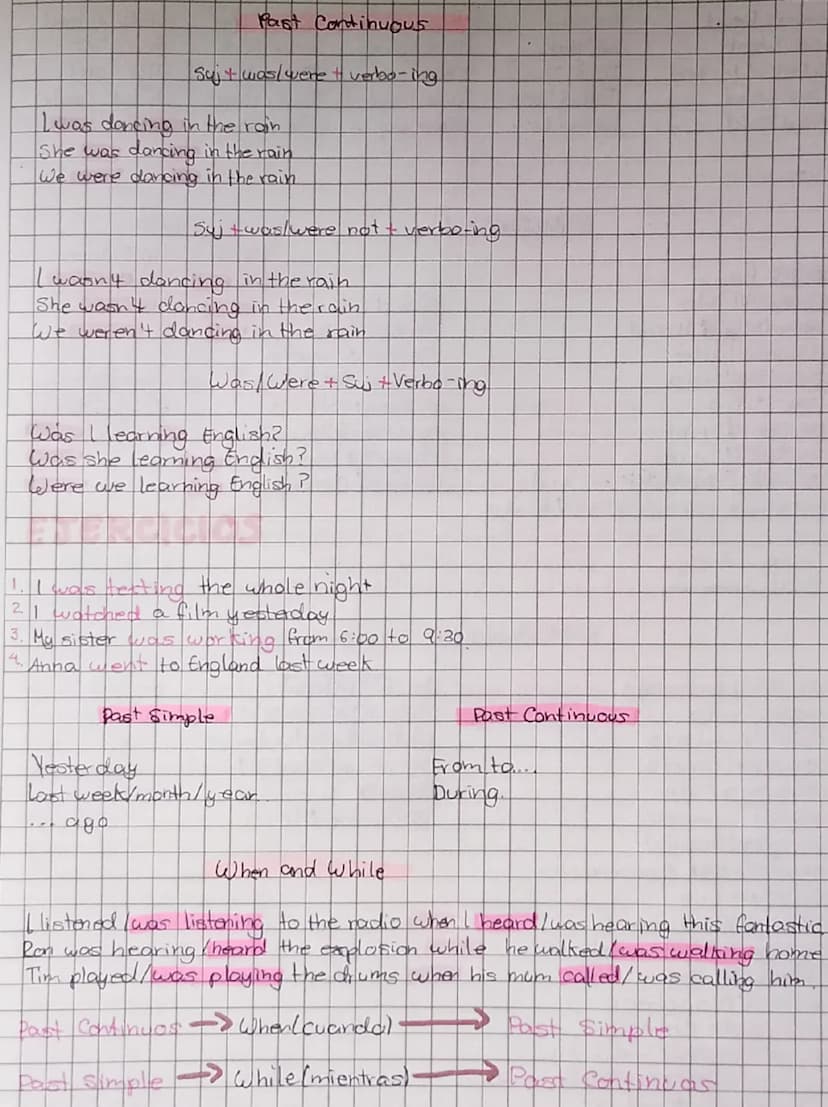 Past Continuous
Suj + was/were + verbo-ing
I was dancing in the rain
She was dancing in the rain
We were dancing in the rain
Suj + was/were not + verbo-ing
I wasn't dancing in the rain
She wasn't dancing in the rain
We weren't dancing in the rain
Was/Were + Suj + Verbo-ing
Was I learning English?
Was she learning English?
Were we learning English?
EJERCICIOS
1. I was the whole night
2. I watched a film yesterday
3. My sister was working from 6:00 to 9:30
4. Anna went to England last week
Past Simple Past Continuous
Yesterday From, to...
Last week/month/year During.
... ago
When and While
I listened/was listening to the radio when I heard/was hearing this fantastic
Ron was hearing/heard the explosion while he walked/was walking home
Tim played/was playing the drums when his mum called/was calling him.
Past Continuos → When (cuando) → Past Simple
Past Simple → While (mientras) → Past Continuos